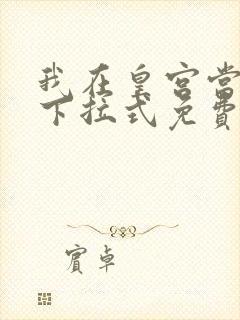 我在皇宫当
下拉式免费
宾卓